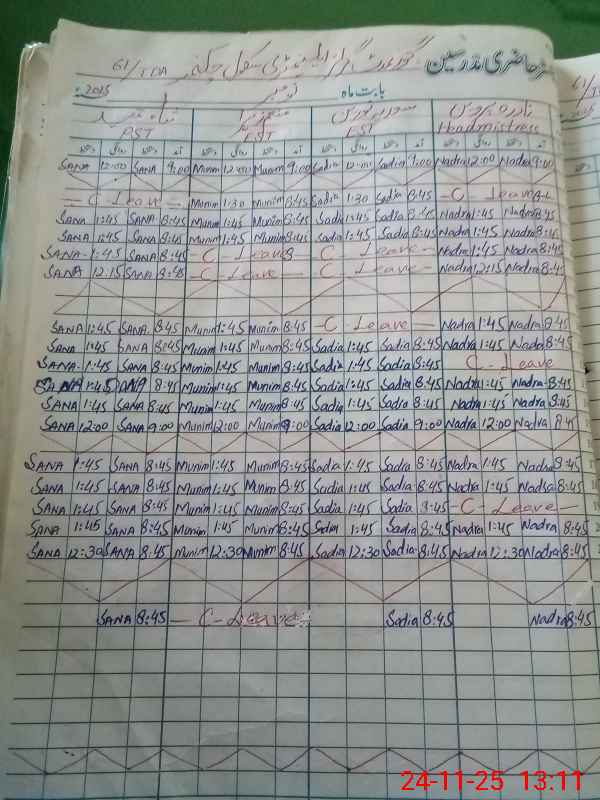 رجسٹر حاضری مدرسین گورنمنٹ گرلز ایلیمنٹری سکول چک نمبر 61/TDA
بابت ماہ نومبر 2025
نادرہ پروین سدرہ منعم زہرا ثناء
Headmistress EST EST PST
SANA 12:00 SANA 9:00 Munim 12:00 Munim 9:00 Sadia 12:00 Sadia 9:00 Nadra 12:00 Nadra 9:00
— C - Leave — Munim 1:30 Munim 8:45 Sadia 1:30 Sadia 8:45 — C - Leave
SANA 1:45 SANA 8:45 Munim 1:45 Munim 8:45 Sadia 1:45 Sadia 8:45 Nadra 1:45 Nadra 8:45
SANA 1:45 SANA 8:45 Munim 1:45 Munim 8:45 Sadia 1:45 Sadia 8:45 Nadra 1:45 Nadra 8:45
SANA 1:45 SANA 8:45 — C - Leave — C - Leave — Nadra 1:45 Nadra 8:45
SANA 12:15 SANA 8:45 — C - Leave — C - Leave — Nadra 12:15 Nadra 8:45
SANA 1:45 SANA 8:45 Munim 1:45 Munim 8:45 — C - Leave — Nadra 1:45 Nadra 8:45
SANA 1:45 SANA 8:45 Munim 1:45 Munim 8:45 Sadia 1:45 Sadia 8:45 Nadra 1:45 Nadra 8:45
SANA 1:45 SANA 8:45 Munim 1:45 Munim 8:45 Sadia 1:45 Sadia 8:45 C - Leave
SANA 1:45 SANA 8:45 Munim 1:45 Munim 8:45 Sadia 1:45 Sadia 8:45 Nadra 1:45 Nadra 8:45
SANA 1:45 SANA 8:45 Munim 1:45 Munim 8:45 Sadia 1:45 Sadia 8:45 Nadra 1:45 Nadra 8:45
SANA 12:00 SANA 9:00 Munim 12:00 Munim 9:00 Sadia 12:00 Sadia 9:00 Nadra 12:00 Nadra 8:45
SANA 1:45 SANA 8:45 Munim 1:45 Munim 8:45 Sadia 1:45 Sadia 8:45 Nadra 1:45 Nadra 8:45
SANA 1:45 SANA 8:45 Munim 1:45 Munim 8:45 Sadia 1:45 Sadia 8:45 Nadra 1:45 Nadra 8:45
SANA 1:45 SANA 8:45 Munim 1:45 Munim 8:45 Sadia 1:45 Sadia 8:45 — C - Leave —
SANA 1:45 SANA 8:45 Munim 1:45 Munim 8:45 Sadia 1:45 Sadia 8:45 Nadra 1:45 Nadra 8:45
SANA 12:30 SANA 8:45 Munim 12:30 Munim 8:45 Sadia 12:30 Sadia 8:45 Nadra 12:30 Nadra 8:45
SANA 8:45 — C - Leave Sadia 8:45 Nadra 8:45
24-11-25 13:11